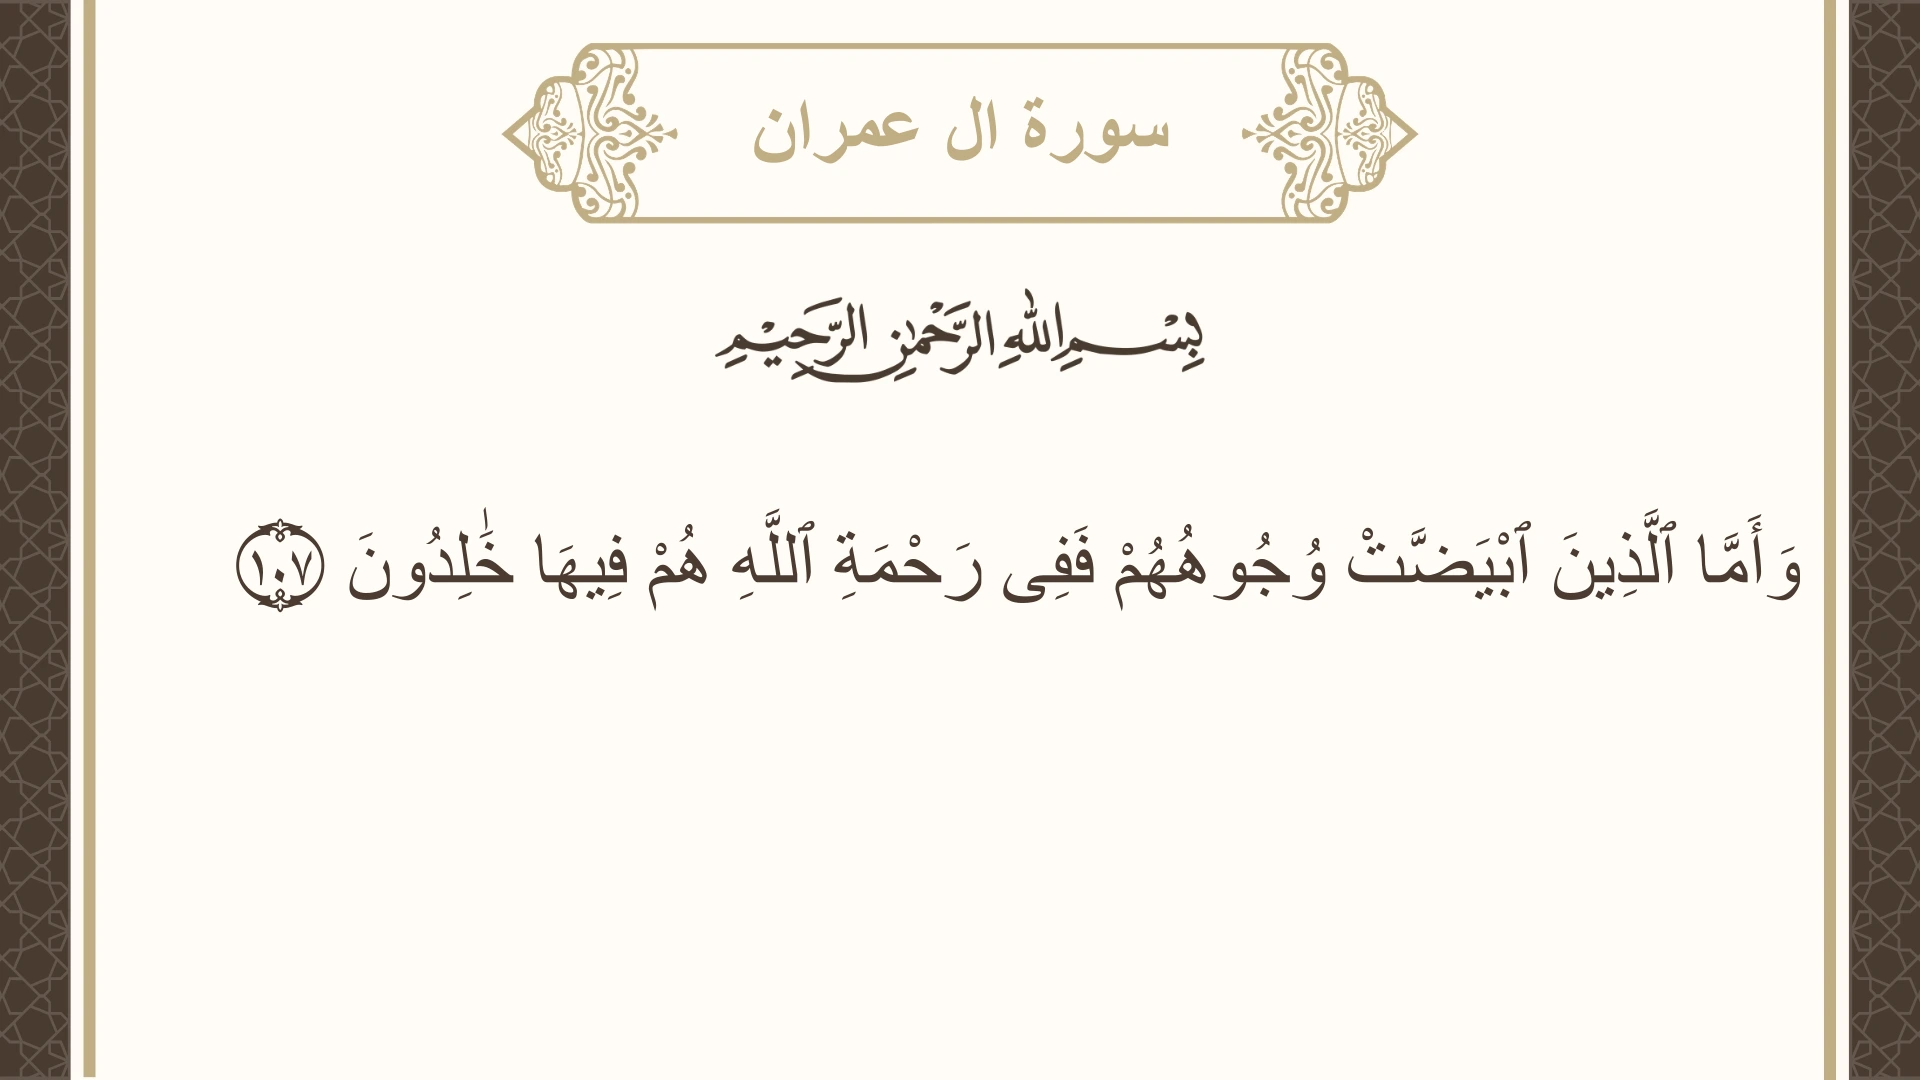 سورة ال عمران
بِسْمِ اللهِ الرَّحْمٰنِ الرَّحِيْمِ
وَأَمَّا ٱلَّذِينَ ٱبْيَضَّتْ وُجُوهُهُمْ فَفِى رَحْمَةِ ٱللَّهِ هُمْ فِيهَا خَٰلِدُونَ ١٠٧